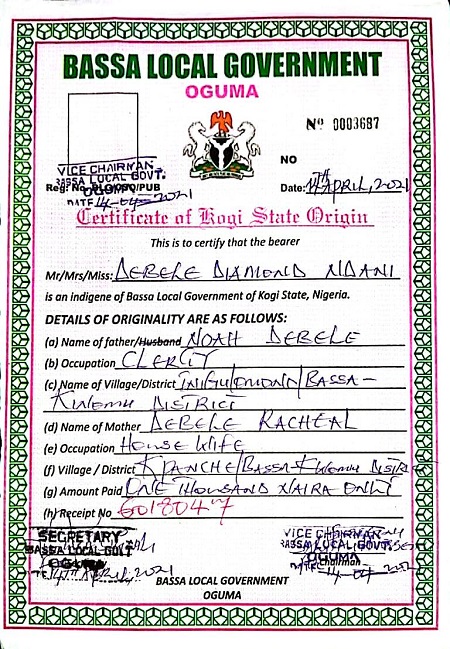 BASSA LOCAL GOVERNMENT
OGUMA
Nº 0003687
NO
VICE CHAIRMAN
BASSA LOCAL GOVT.
OGUMA
Reg. No. BLG/CSO/PUB
DATE 14-04-2021
Date: 14TH APRIL, 2021
Certificate of Kogi State Origin
This is to certify that the bearer
Mr/Mrs/Miss: DEBELE DIAMOND NDANI
is an indigene of Bassa Local Government of Kogi State, Nigeria.
DETAILS OF ORIGINALITY ARE AS FOLLOWS:
(a) Name of father/Husband NOAH DEBELE
(b) Occupation CLERGY
(c) Name of Village/District /BASSA-
KWOMU DISTRICT
(d) Name of Mother DEBELE RACHEAL
(e) Occupation HOUSE WIFE
(f) Village / District KPANCHE/BASSA-KWOMU DISTRICT
(g) Amount Paid ONE THOUSAND NAIRA ONLY
(h) Receipt No 6018047
SECRETARY
BASSA LOCAL GOVT
OGUMA
14TH APRIL, 2021
VICE CHAIRMAN
BASSA LOCAL GOVT.
OGUMA
Chairman
DATE 14-04-2021
BASSA LOCAL GOVERNMENT
OGUMA